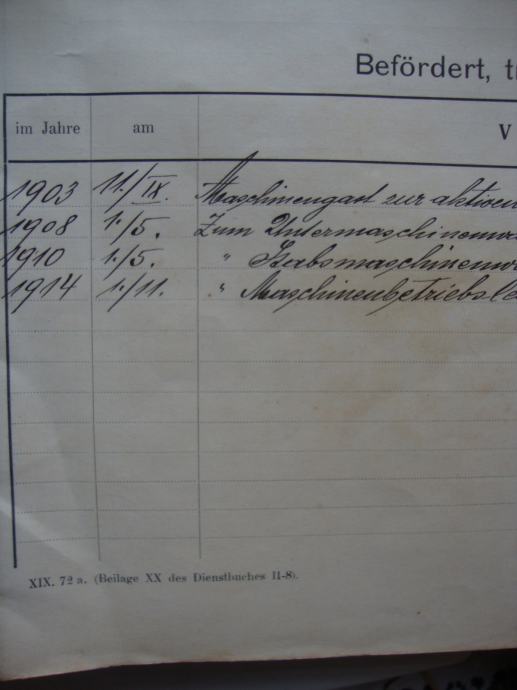 Befördert, t
im Jahre am V
1903 11./IX. Maschinengast zur aktiven
1908 1./5. Zum Untermaschinenwä
1910 1./5. " Stabsmaschinenwä
1914 1./11. " Maschinenbetriebsle
XIX. 72 a. (Beilage XX des Dienstbuches II-8).